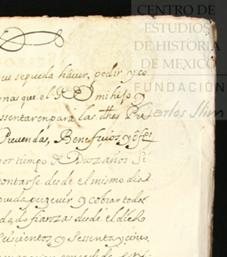 CENTRO DE
ESTUDIOS
DE HISTORIA
DE MEXICO
FUNDACIÓN
Carlos Slim
que sepueda haver, pedir y co
nas que el D mi hijo y
sentaren para las dhas Pre
Prevendas, Benefizios y ofi
por tiempo de Dos años Si
contarse desde el mismo dia
pueda perzevir y cobrar todos
dado fianza desde el dicho
seiscientos y sessenta y cinco